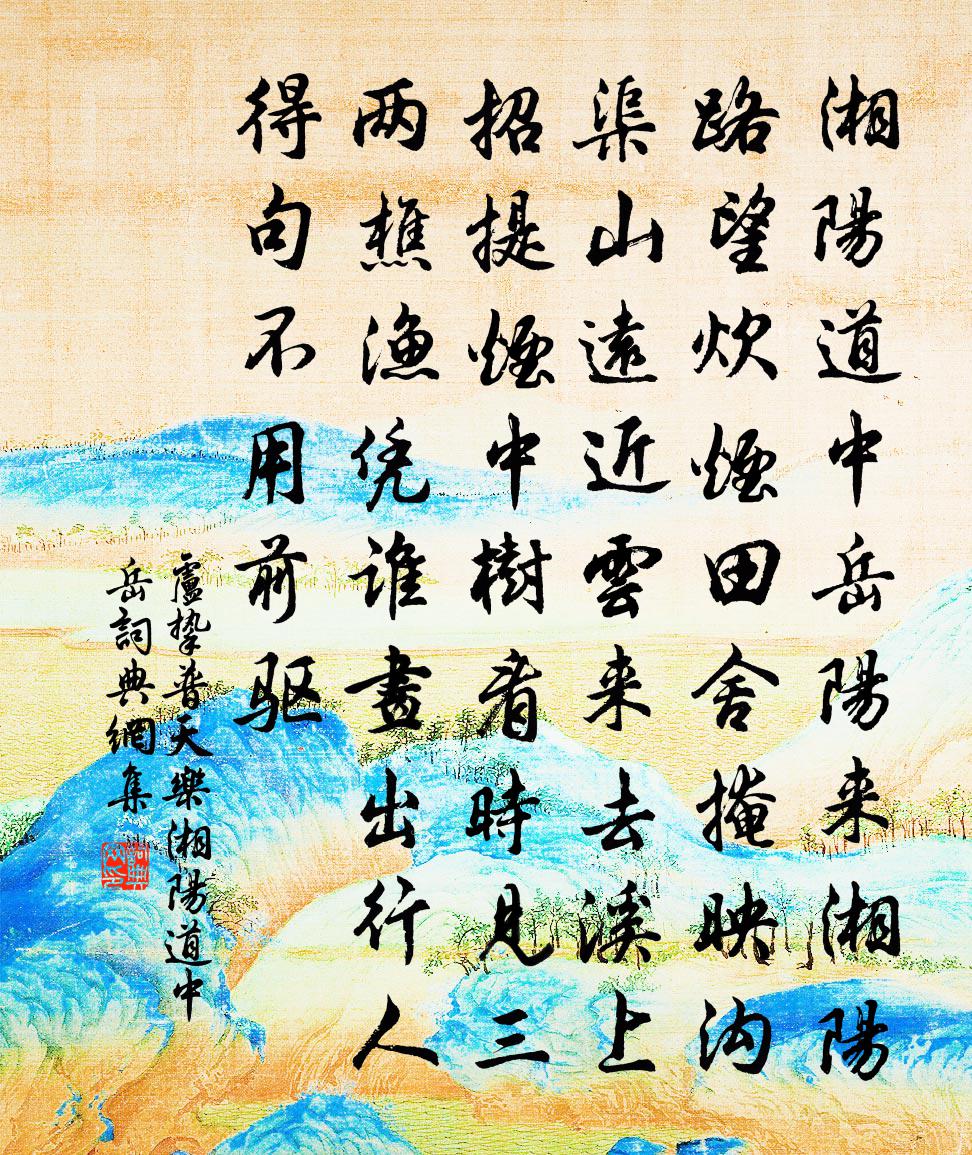 湘陽道中岳陽来湘陽
路望炊煙田舍掩映沟
渠山遠近雲来去溪上
招提煙中樹看時見三
两樵漁凭谁畫出行人
得句不用前驱
盧摯普天樂湘陽道中
岳詞典網集